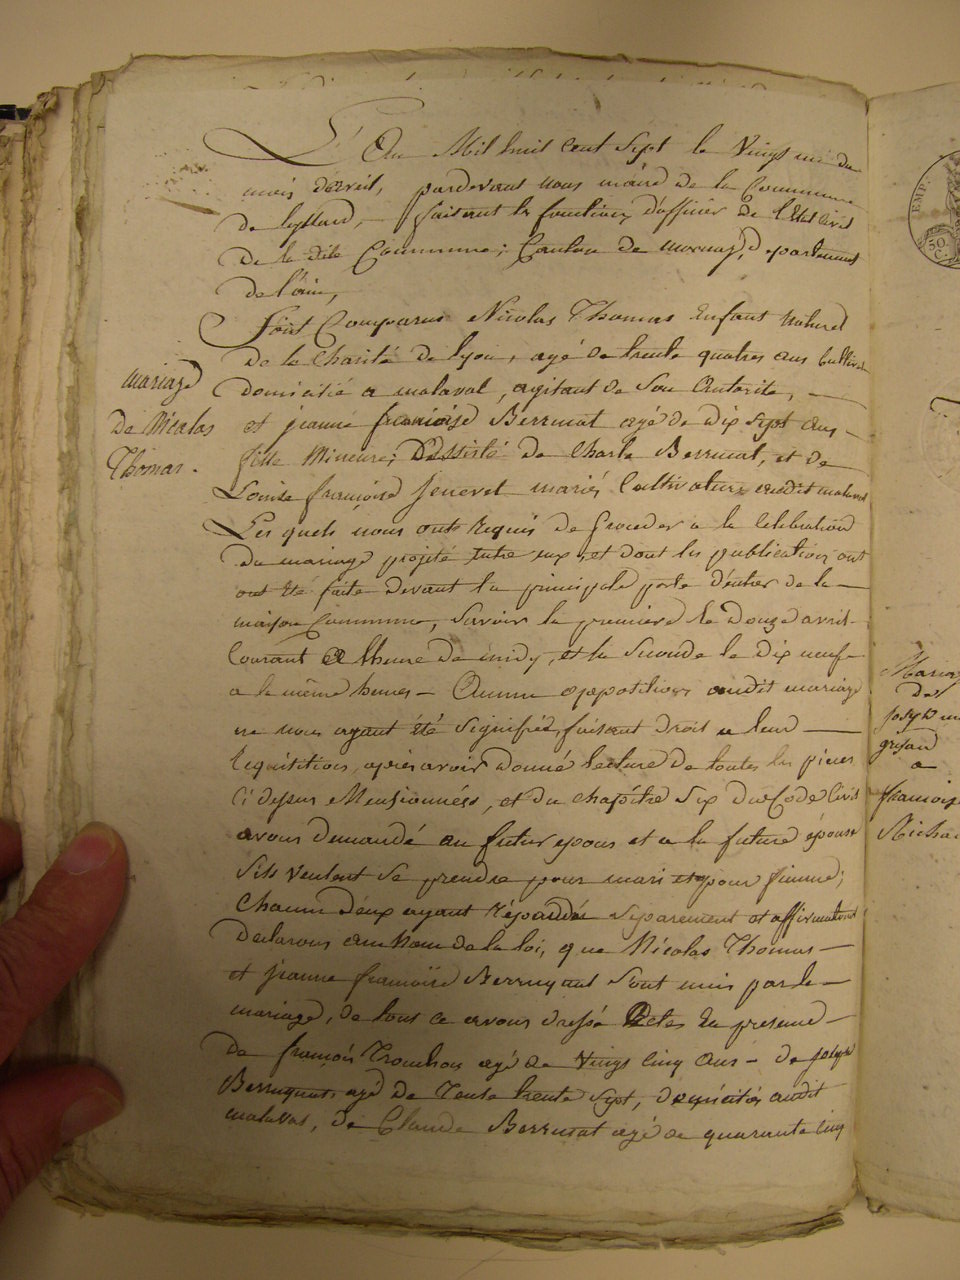 L'An Mil huit cent Sept le Vingt un du
mois davril, pardevant nous maire de la Commune
de faisant les fonctions d'officier de l'Etat Civil
de la dite Commune; Canton de département
de l'ain,
Sont Comparus Nicolas Thomas Enfant Naturel
de la Charité de lyon, agé de trente quatres ans Cultivat
domicilié a malaval, agissant de Son Autorite,
et jeanne francoise Berrucat agé de dix Sept ans
fille Mineure; D'assisté de Charle Berrucat, et de
Louise francoise jeneret mariés Cultivateurs audit malaval
Les quels nous onts requis de proceder a la Celebration
du mariage projeté entre eux, et dont les publications ont
ont été faite devant la principale porte d'entrer de la
maison Commune, Savoir la premiere le douze avril
Courant a lheure de midy, et la Seconde le dix neuf
a la même heures - Aucune opposition audit mariage
ne nous ayant été Signifiée, faisant droit a leur
requisition, apres avoir donné lecture de toutes les pieces
Ci dessus Mensionnées, et du chapitre Six du Code Civil
avons demandé au futur epous et a la future épouse
Sils veulent Se prendre pour mari et pour femme;
Chacun d'eux ayant répondu Séparement et affirmativement
declarons au Nom de la loi, que Nicolas Thomas
et jeanne francoise Berrucat Sont unis par le
mariage, de tous ce avons dressé Actes En presence
de francois agé de Vingt Cinq ans - de joseph
agé de trente Sept, audit
malaval, de Claude Berrucat agé de quarante Cinq
mariage
De Nicolas
Thomas.
EMP.
50
C.
Mariage
de
joseph
a
francois